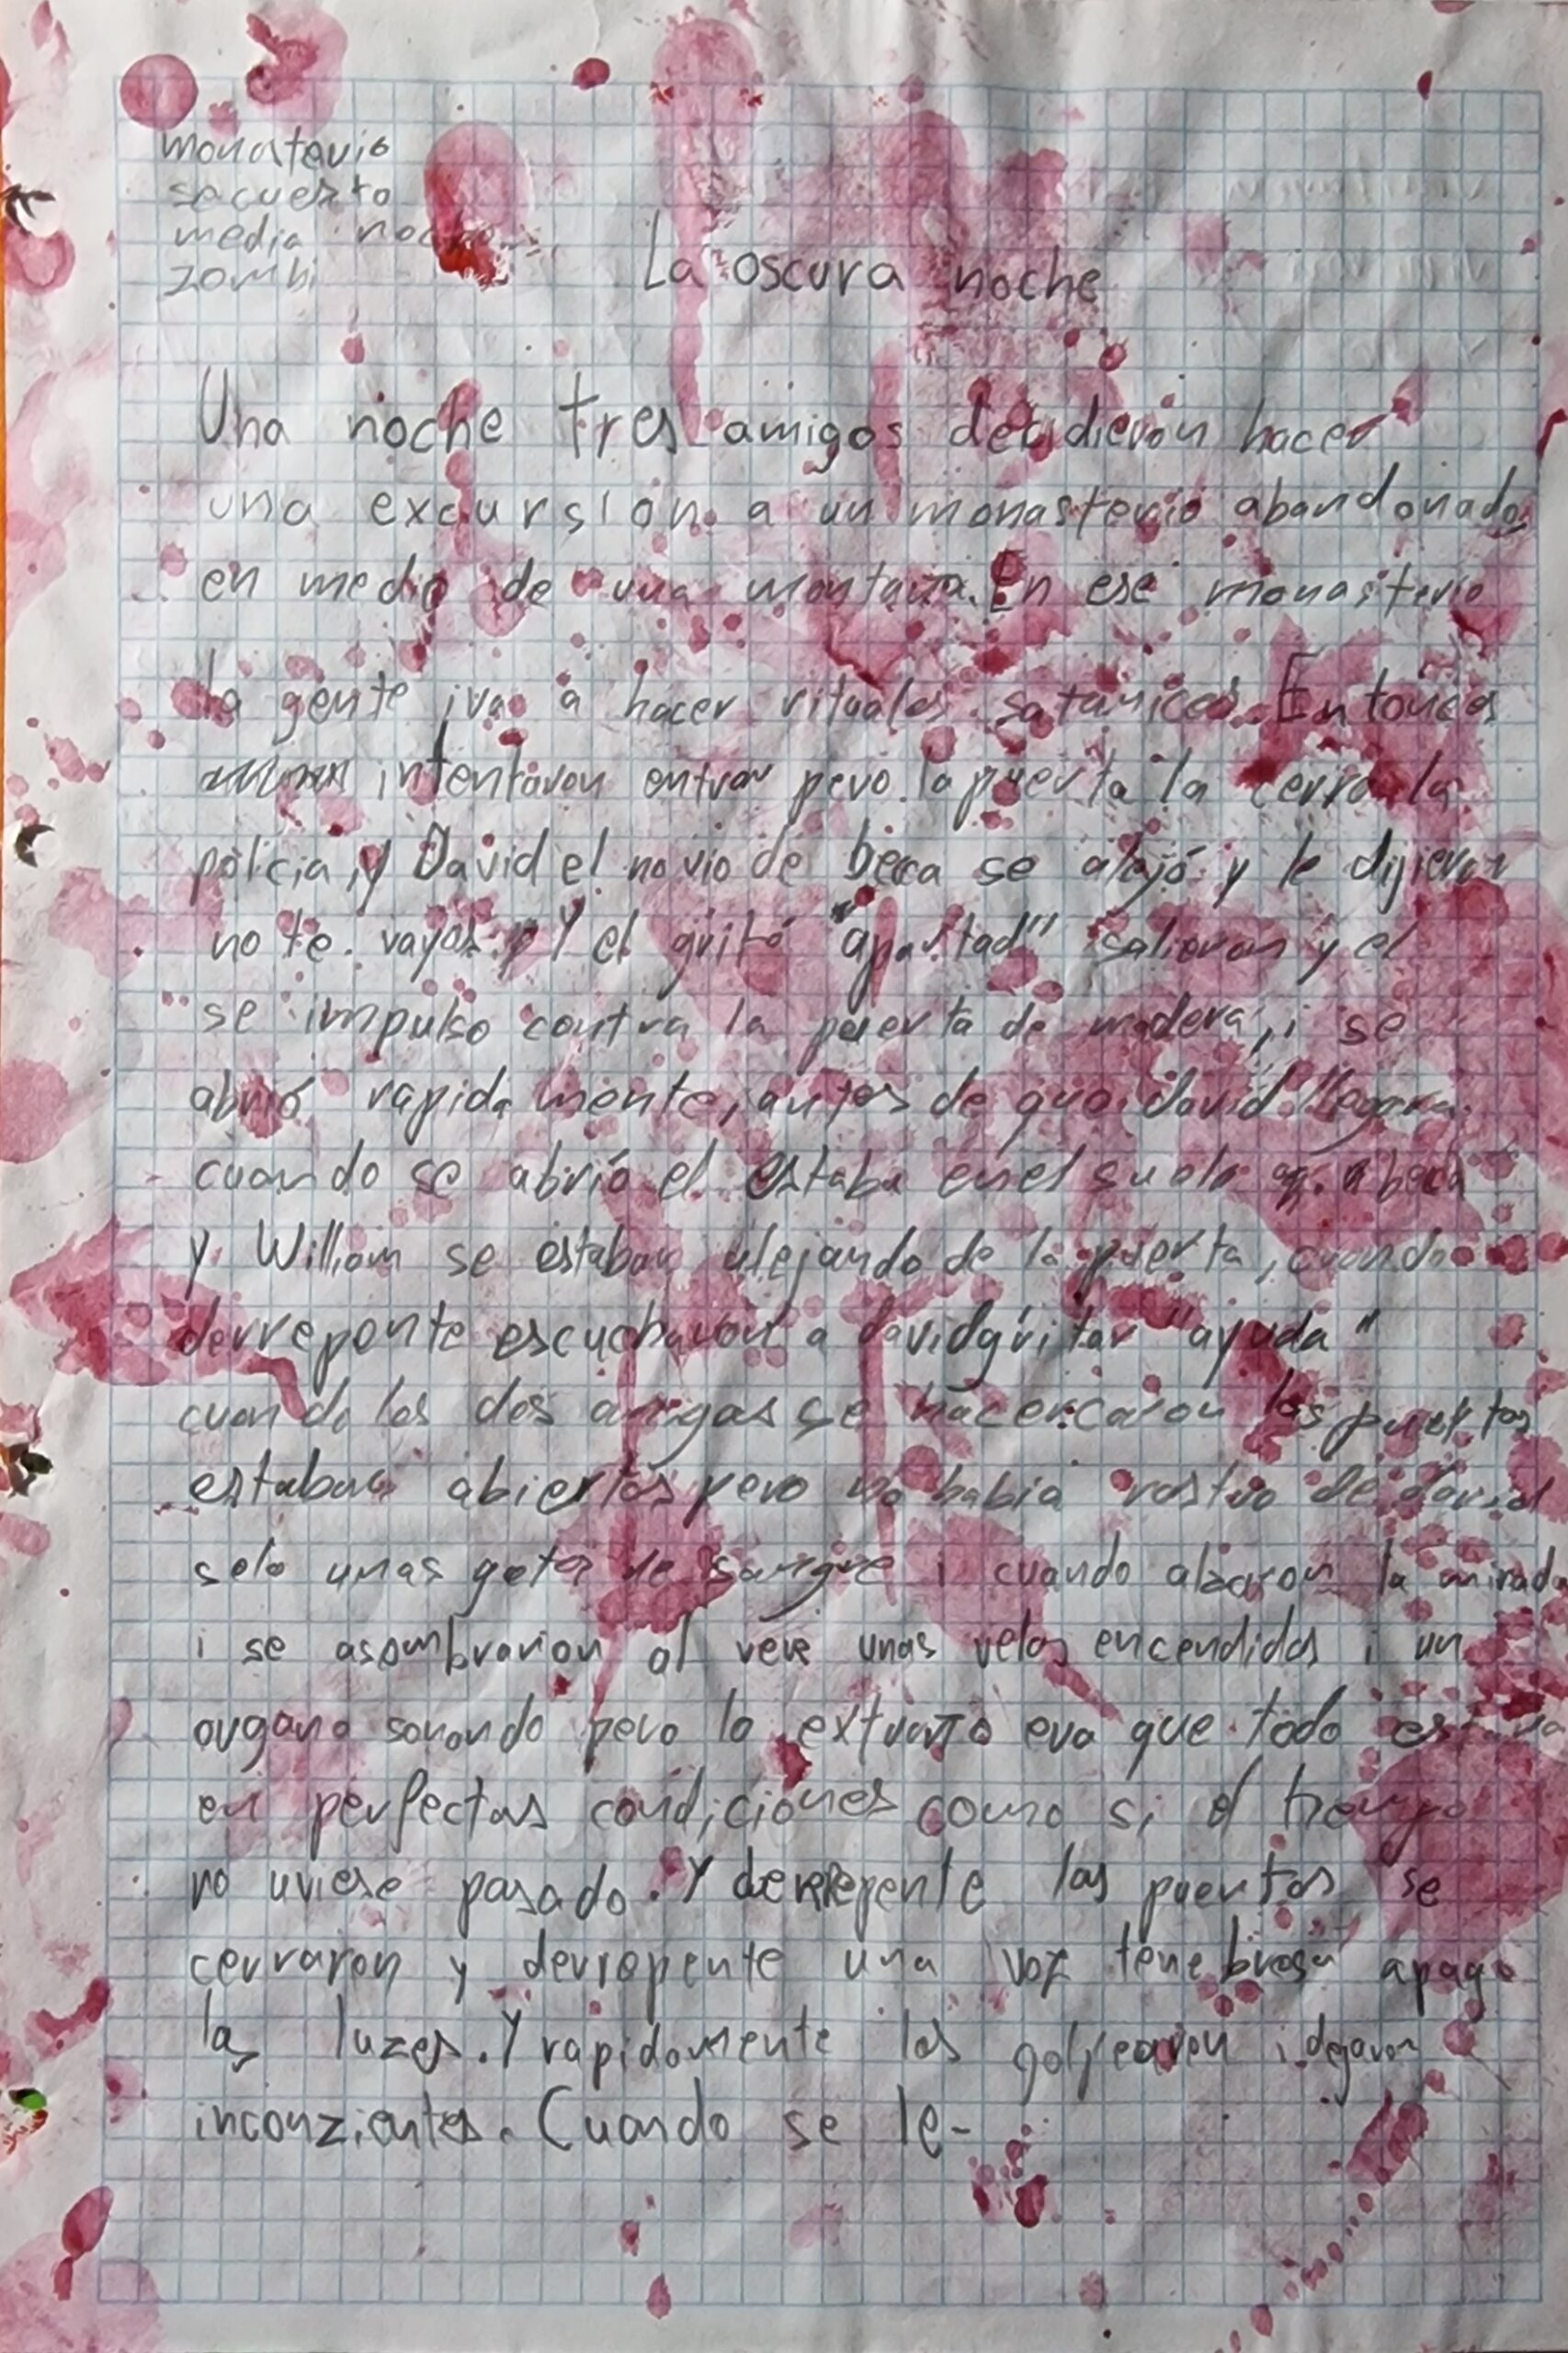 monasterio
secuestro
media noche
zombi
La oscura noche
Una noche tres amigos decidieron hacer
una excursión a un monasterio abandonado
en medio de una montaña. En ese monasterio
la gente iva a hacer rituales satanicos. Entonces
intentaron entrar pero la puerta la cerró la
policia, y David el novio de beca se alejó y le dijieron
no te vayas. Y el gritó "apartad" salieron y el
se impulso contra la puerta de madera, i se
abrió rapidamente, antes de que david llegara
cuando se abrió el estaba en el suelo a beca
y William se estaban alejando de la puerta, cuando
derrepente escucharon a david gritar "ayuda"
cuando los dos amigos se hacercaron las puertas
estaban abiertas pero no habia rastro de david
solo unas gotas de sangre i cuando alzaron la mirada
i se asombrarion al vere unas velas encendidas i un
organo sonando pero lo extraño era que todo estava
en perfectas condiciones como si el tiempo
no uviese pasado. Y derrepente las puertas se
cerraron y derrepente una voz tenebrosa apago
las luzes. Y rapidamente los golpearon i dejaron
inconzientes. Cuando se le-